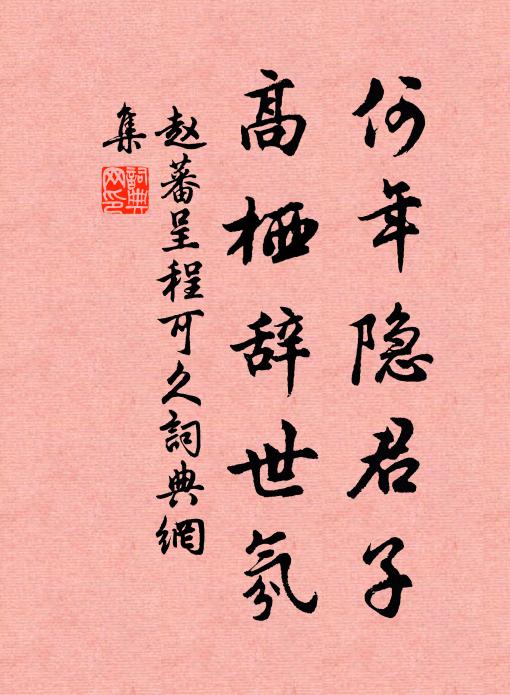 何年隐君子
高栖辞世氛
赵蕃呈程可久詞典網
集
詞典
网印